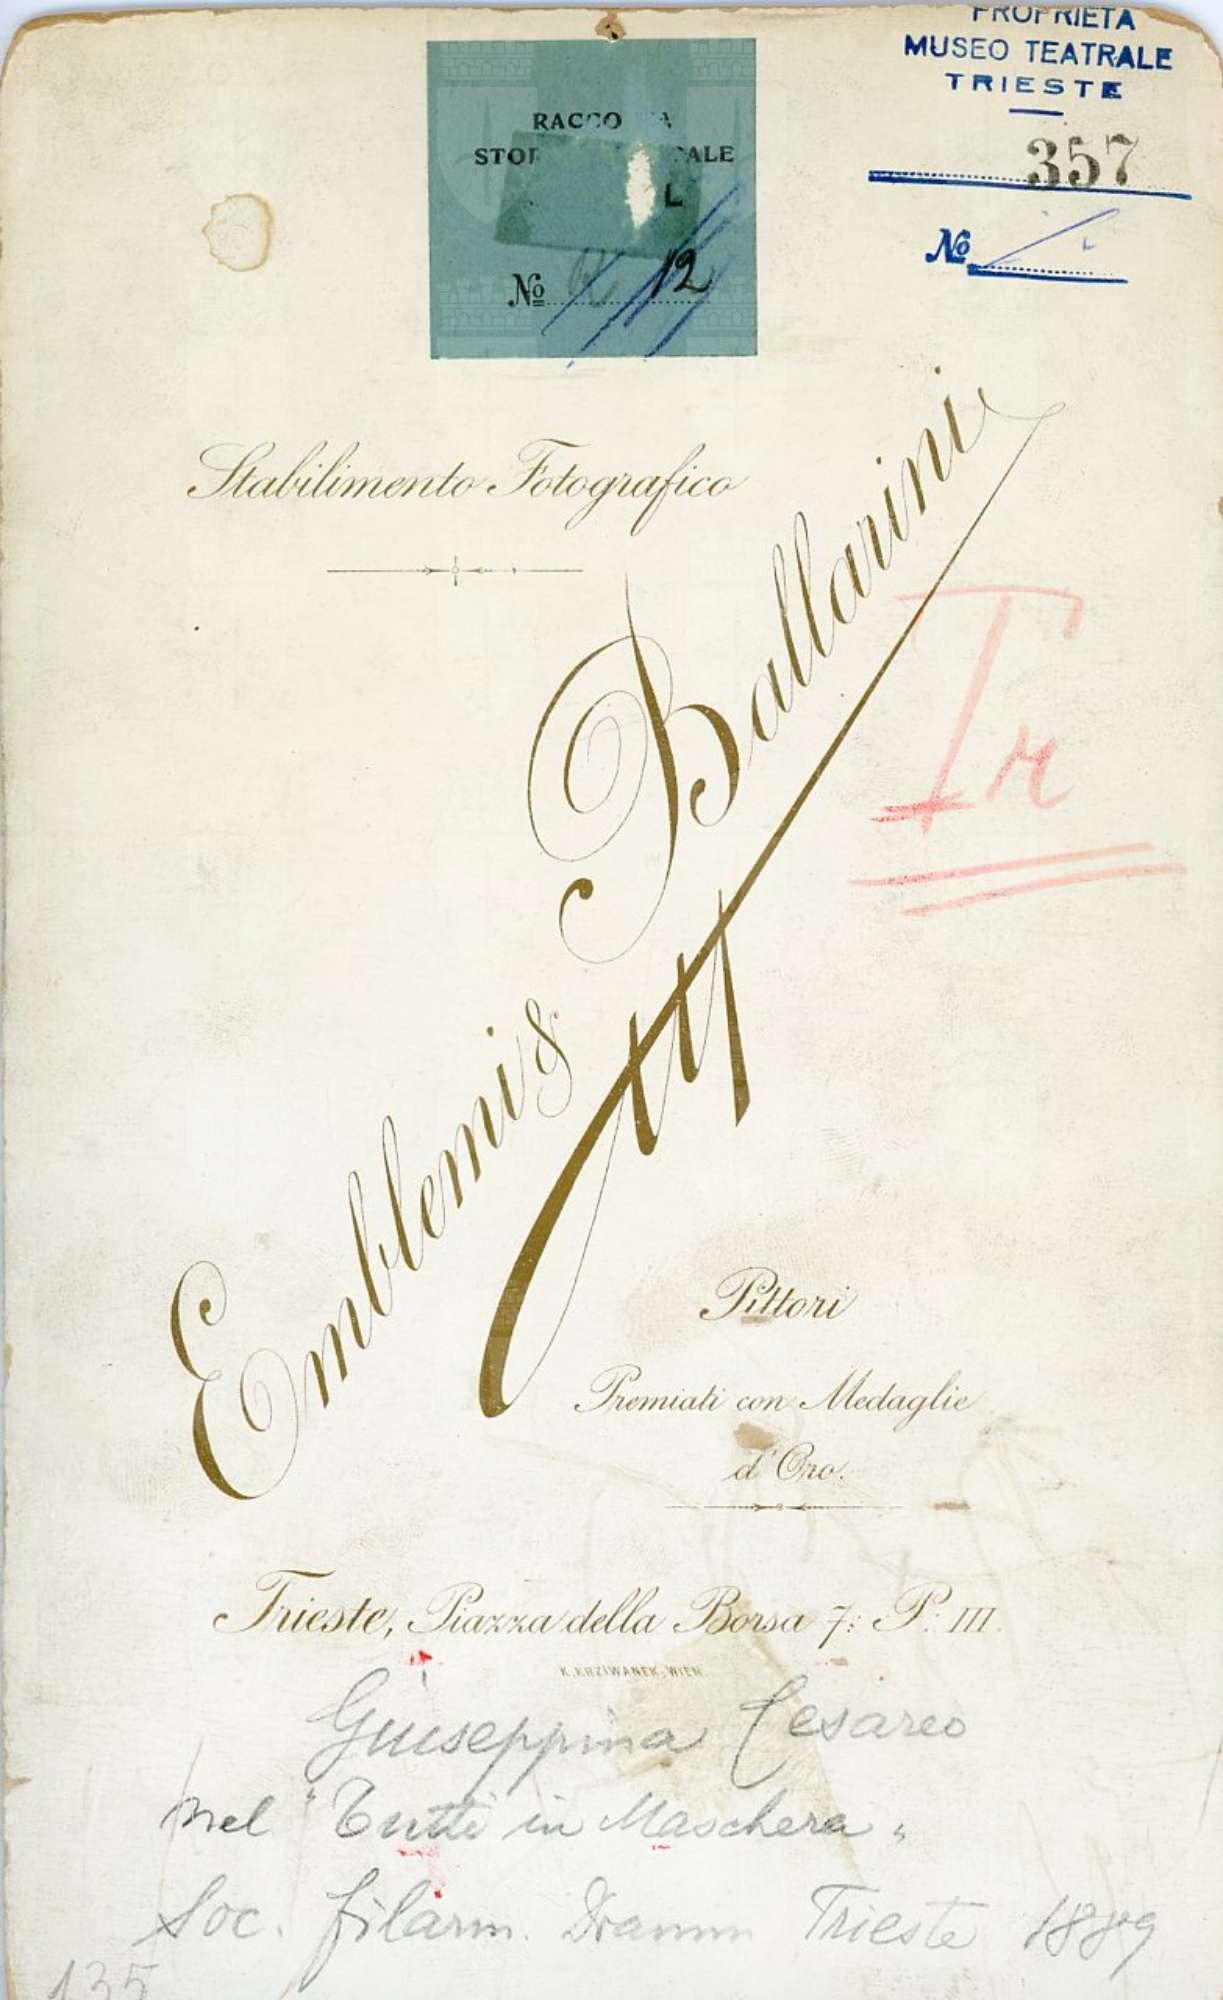 PROPRIETÀ
MUSEO TEATRALE
TRIESTE
357
No
No 12
Stabilimento Fotografico
Emblemi & Ballarini
Pittori
Premiati con Medaglie
d'Oro.
Trieste, Piazza della Borsa 7: P. III.
K. KRZIWANEK, WIEN
Giuseppina Cesareo
nel "Tutti in Maschera"
Soc. filarm. Dramm Trieste 1889
135